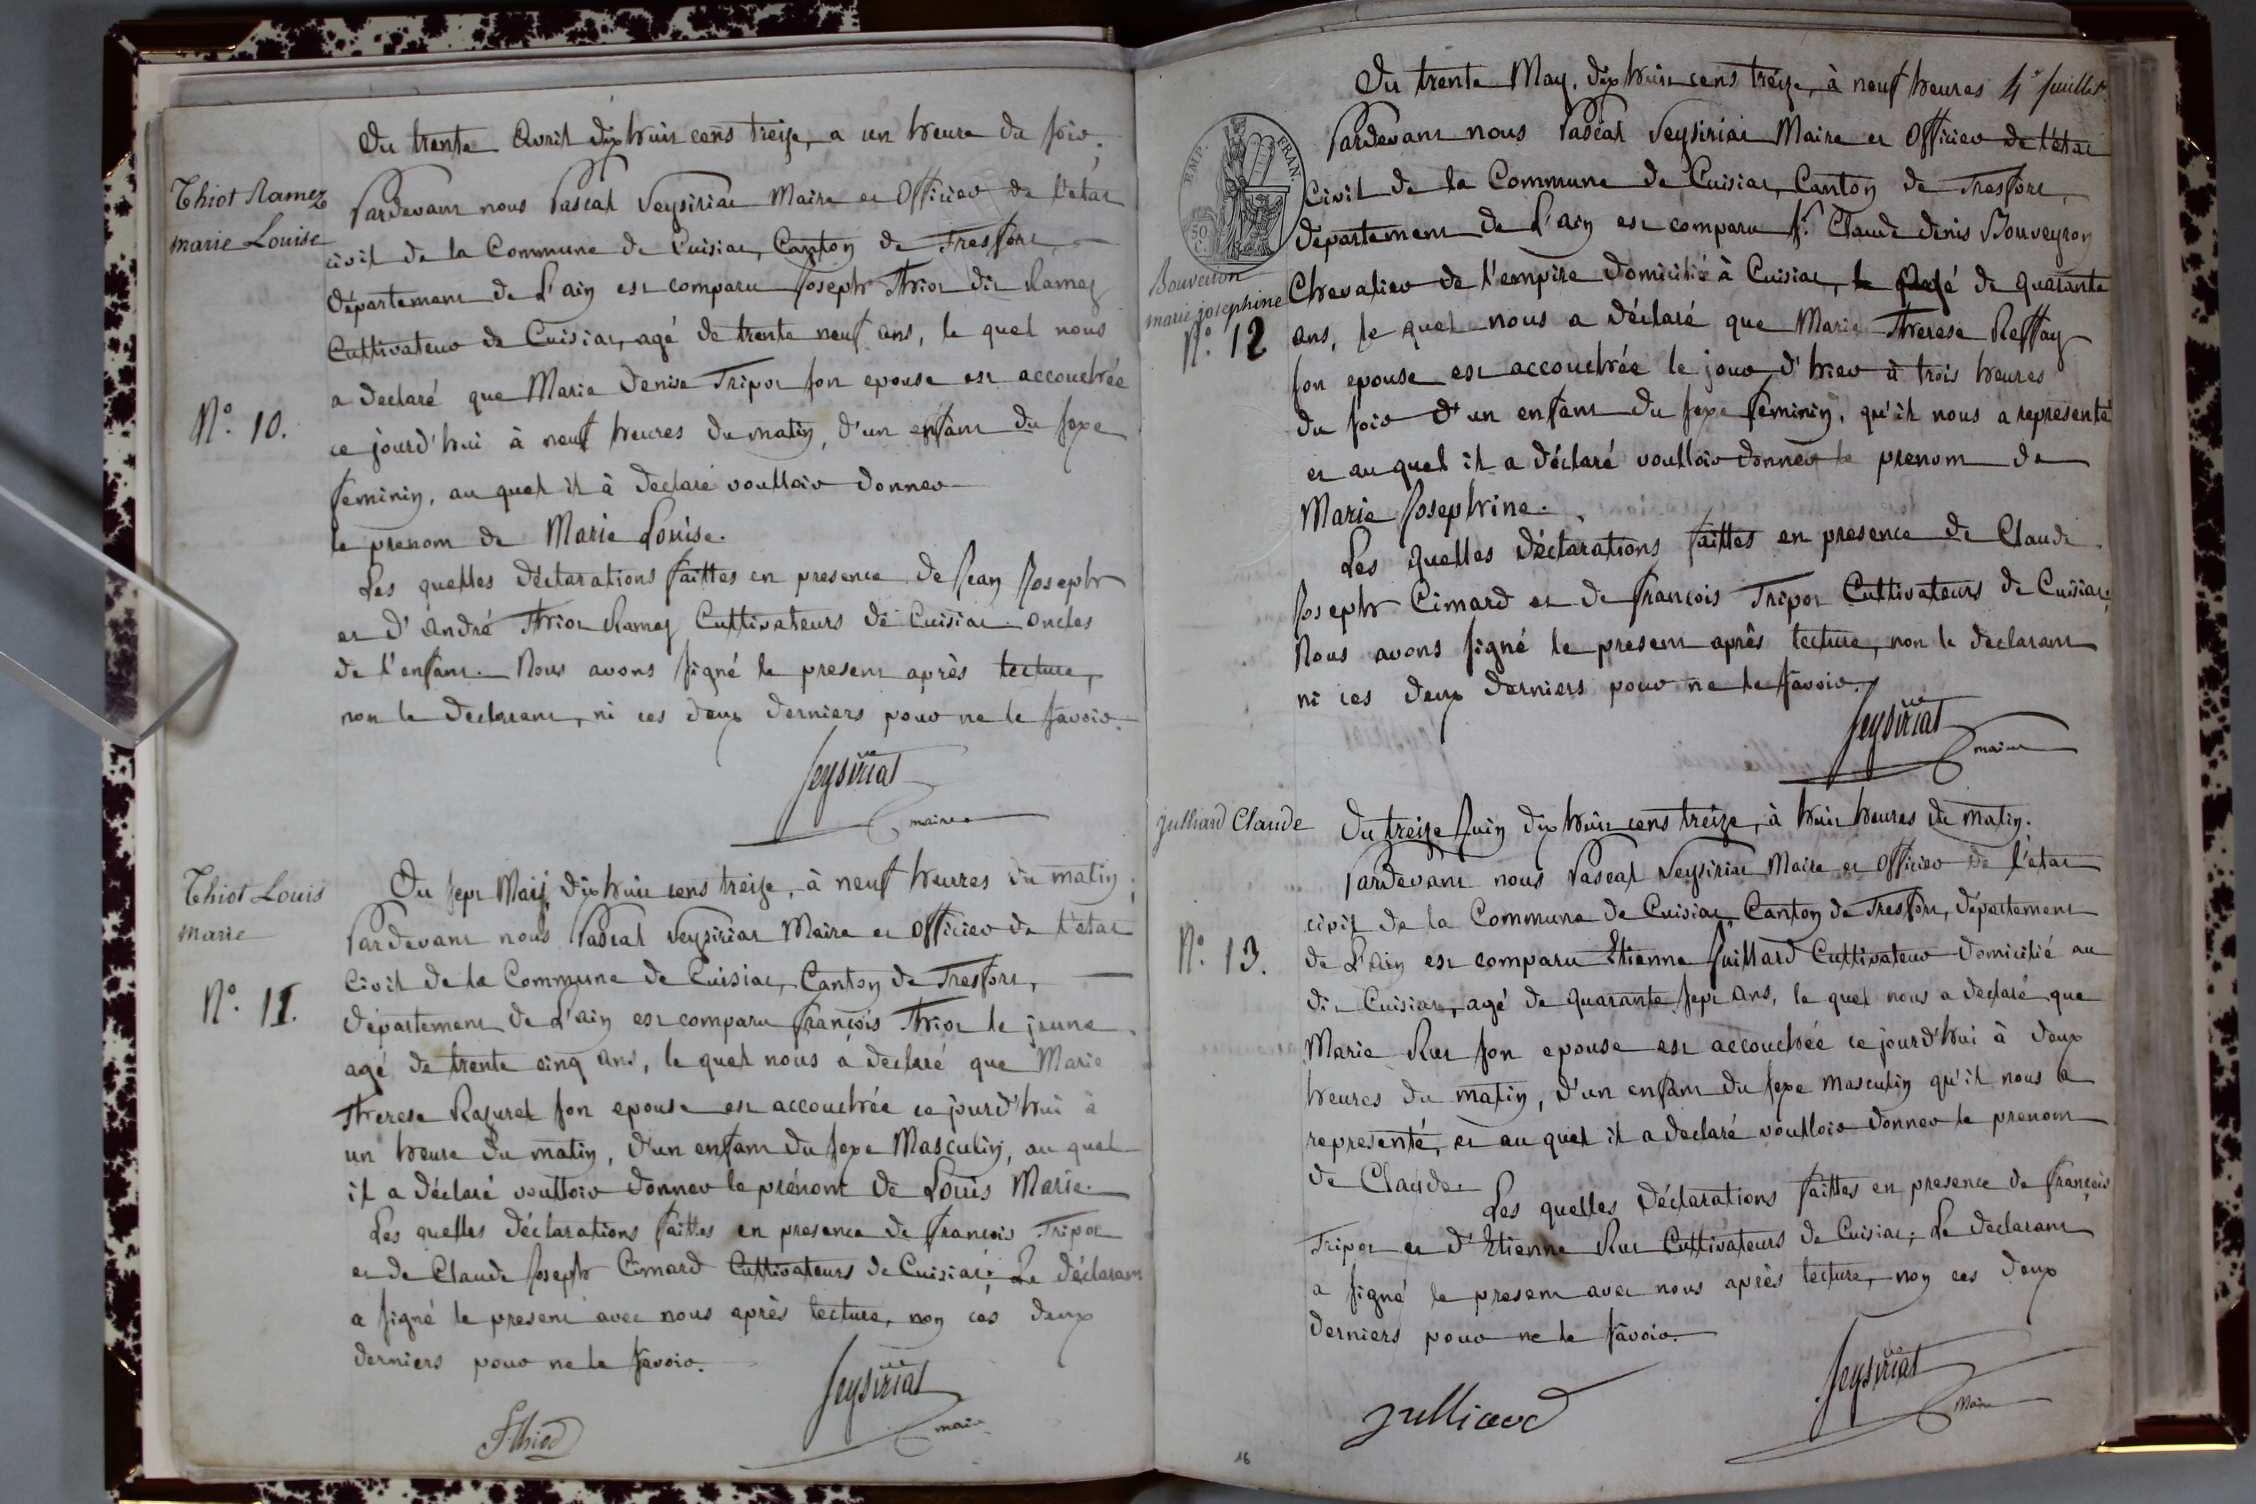 Du trente Avril dix huit cens treize, a un heure du soir.
Thiot Ramez
marie Louise
Pardevant nous Pascal Seysiriat Maire et Officier de l'etat
civil de la Commune de Cuisiat, Canton de Tresfort
Département de L'ain est comparu Joseph Thiot dit Ramez
Cultivateur de Cuisiat, agé de trente neuf ans, le quel nous
a declaré que Marie Denise Tripoz son epouse est accouchée
N.° 10.
ce jourd'hui à neuf heures du matin, d'un enfant du sexe
feminin, au quel il à declaré voulloir donner
le prenom de Marie Louise.
Les quelles déclarations faittes en presence de Jean Joseph
et d'André Thiot Ramez Cultivateurs de Cuisiat oncles
de l'enfant. Nous avons signé le present après lecture,
non le declarant, ni ces deux derniers pour ne le savoir.
Seysiriat
maire
Thiot Louis
marie
Du sept Maij dix huit cens treize, à neuf heures du matin,
Pardevant nous Pascal Seysiriat Maire et Officier de l'etat
N.° 11.
Civil de la Commune de Cuisiat, Canton de Tresfort,
département de L'ain est comparu françois Thiot le jeune
agé de trente cinq ans, le quel nous a declaré que Marie
Therese Razurel son epouse est accouchée ce jourd'hui à
un heure du matin, d'un enfant du sexe Masculin, au quel
il a déclaré voulloir donner le prénom de Louis Marie.
Les quelles déclarations faittes en presence de françois Tripoz
et de Claude Joseph Cimard Cultivateurs de Cuisiat; Le déclarant
a signé le present avec nous après lecture, non ces deux
derniers pour ne le savoir.
Seysiriat
maire
fthiod
Du trente May, dix huit cens treize, à neuf heures 4.e feuillet
EMP. FRAN
50 C.
Pardevant nous Pascal Seysiriat Maire et Officier de l'etat
Civil de la Commune de Cuisiat, Canton de Tresfort,
département de L'ain est comparu s.r Claude denis Bouveyron
Bouveiron
marie josephine
N.° 12
Chevalier de l'empire domicilié à Cuisiat, agé de quarante
ans, le quel nous a déclaré que Marie Therese Reffay
son epouse est accouchée le jour d'hier à trois heures
du soir d'un enfant du sexe feminin, qu'il nous a representé
et au quel il a déclaré voulloir donner le prenom de
Marie Josephine.
Les quelles déclarations faittes en presence de Claude
Joseph Cimard et de françois Tripoz Cultivateurs de Cuisiat;
Nous avons signé le present après lecture, non le declarant
ni ces deux derniers pour ne le savoir.
Seysiriat
maire
julliard Claude
Du treize Juin dix huit cens treize, à huit heures du matin.
Pardevant nous Pascal Seysiriat Maire et officier de l'etat
civil de la Commune de Cuisiat, Canton de Tresfort, département
N.° 13.
de L'ain est comparu Etienne Juillard Cultivateur domicilié au
dit Cuisiat, agé de quarante sept ans, le quel nous a declaré que
Marie Rut son epouse est accouchée ce jourd'hui à deux
heures du matin, d'un enfant du sexe masculin qu'il nous a
representé, et au quel il a declaré voulloir donner le prenom
de Claude. Les quelles déclarations faittes en presence de françois
Tripoz et d'Etienne Rut Cultivateurs de Cuisiat; Le declarant
a signé le present avec nous après lecture, non ces deux
derniers pour ne le savoir.
Seysiriat
Maire
julliard
16